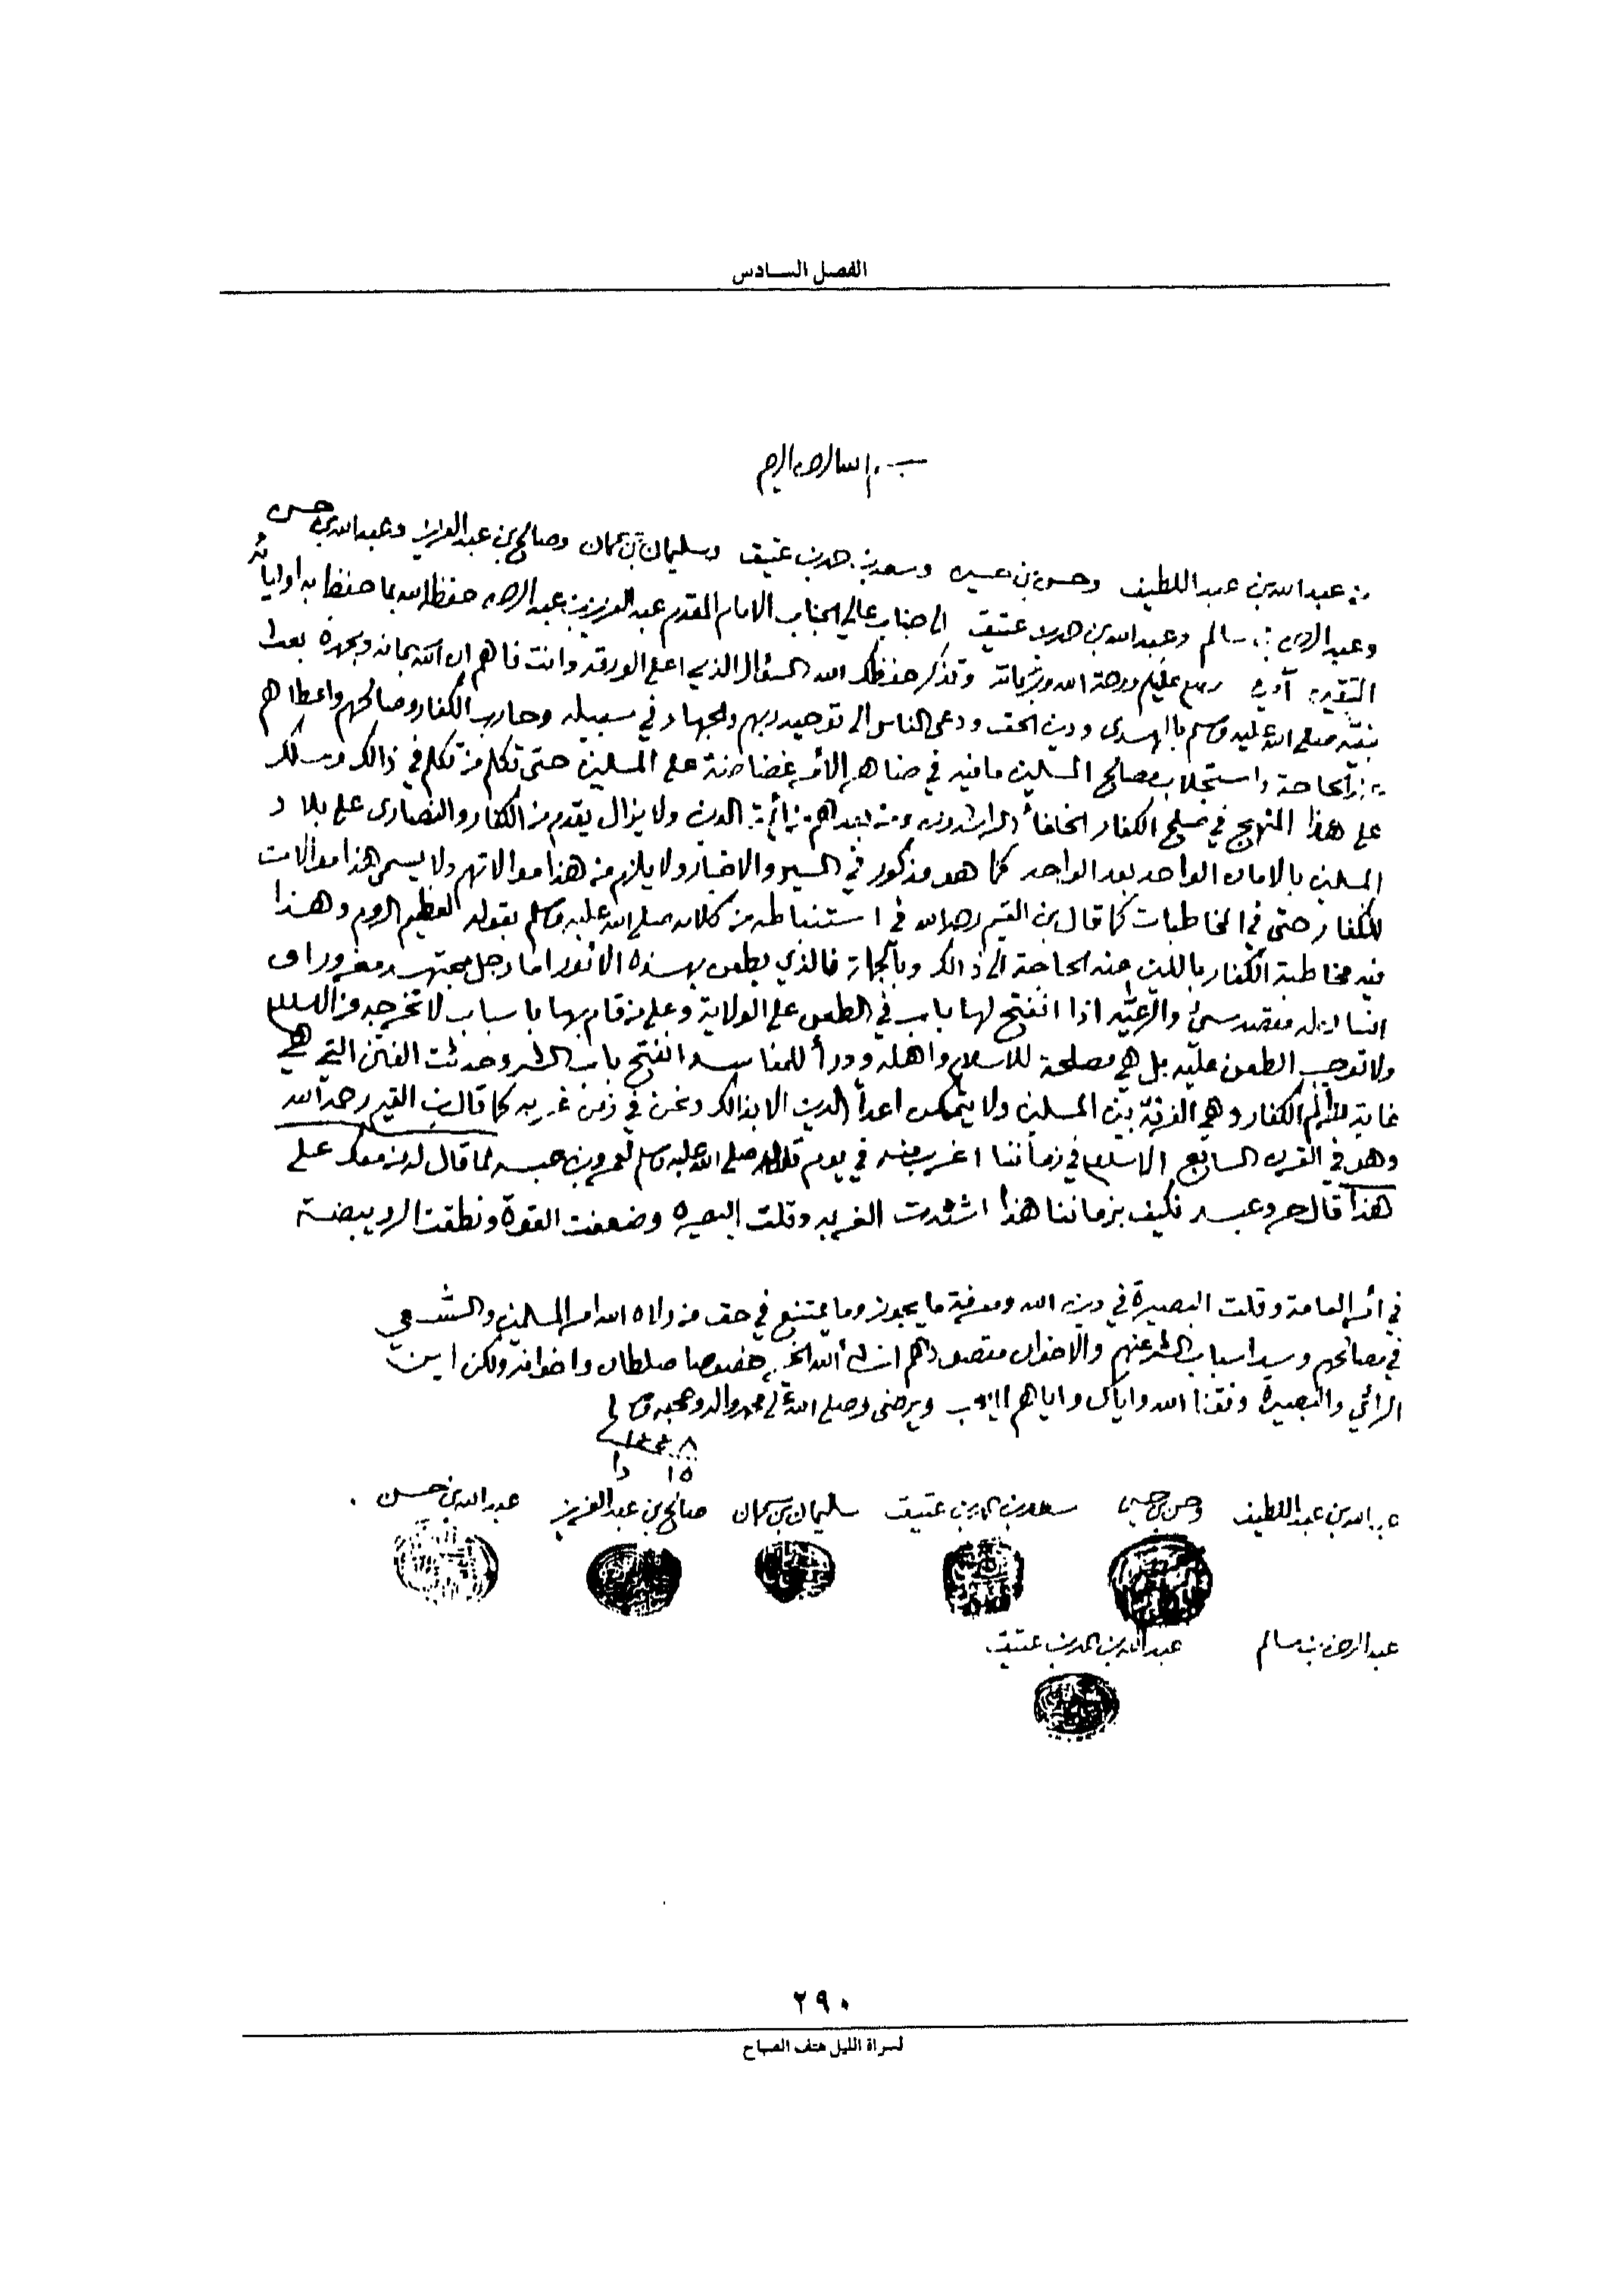 الفصل السادس
بسم الله الرحمن الرحيم
من عبدالله بن عبداللطيف وحسن بن حسين وسعد بن حمد بن عتيق وسليمان بن سحمان وصالح بن عبدالعزيز وعبدالله بن حسن
وعبدالرحمن بن سالم وعبدالله بن حمد بن عتيق الى جناب عالي الجناب الامام المقدم عبدالعزيز بن عبدالرحمن حفظه الله بما حفظ به اولياءه
المتقين آمين سلام عليكم ورحمة الله وبركاته وتذكر حفظك الله السؤال الذي اعلى الورقه وانت فاهم ان الله سبحانه وبحمده بعث
نبيه صلى الله عليه وسلم بالهدى ودين الحق ودعى الناس الى توحيد ربهم والجهاد في سبيله وحارب الكفار وصالحهم واعطاهم
الحاجة واستجلاب مصالح المسلمين ما فيه في ضاهر الأمر غضاضة على المسلمين حتى تكلم من تكلم في ذالك وسلك
على هذا المنهج في صلح الكفار الخلفاء الراشدون ومن بعدهم من أئمة الدين ولا يزال يقدم من الكفار والنصارى على بلاد
المسلمين بالامان الواحد بعد الواحد كما هو مذكور في السير والاخبار ولا يلزم من هذا موالاتهم ولا يسمى هذا موالات
للكفار حتى في المخاطبات كما قال بن القيم رحمه الله في استنباطه من كلامه صلى الله عليه وسلم بقوله لعظيم الروم وهذا
فيه مخاطبة الكفار باللين عند الحاجة الى ذالك وبالجملة فالذي يطعن بهذه الأمور اما رجل مجتهد مغرور او
انسان له مقصد سيئ والرعية اذا انفتح لها باب في الطعن على الولاية وعلى من قام بها باسباب لا تخرجه من الاسلام
ولا توجب الطعن عليه بل هي مصلحة للاسلام واهله ودرأ للمفاسد انفتح باب الشر وحدثت الفتن التي هي
غاية مرام الكفار وهي الفرقة بين المسلمين ولا يتمكن اعداء الدين الا بذالك ونحن في زمن غربه كما قال بن القيم رحمه الله
وهو في القرن السابع الاسلام في زماننا اغرب منه في يوم قال صلى الله عليه وسلم لعمرو بن عبسه لما قال له من معك على
هذا قال حر وعبد فكيف بزماننا هذا اشتدت الغربه وقلت البصيره وضعفت القوة ونطقت الرويبضة
في أمر العامة وقلت البصيرة في دين الله ومعرفة ما يجوز وما يمتنع في حق من ولاه الله امر المسلمين والسعي
في مصالحهم وسد اسباب الشر عنهم والاخوان مقصودهم ان شاء الله الخير خصوصا سلطان واخوانه ولكن اين
الرائي والبصيرة وفقنا الله واياك واياهم لما يحب ويرضى وصلى الله على محمد واله وصحبه وسلم
١٣٣٨
١٥ ذا
عبدالله بن عبداللطيف وحسن بن حسين سعد بن حمد بن عتيق سليمان بن سحمان صالح بن عبدالعزيز عبدالله بن حسن
عبدالرحمن بن سالم عبدالله بن حمد بن عتيق
٢٩٠
لسراة الليل هتف الصباح